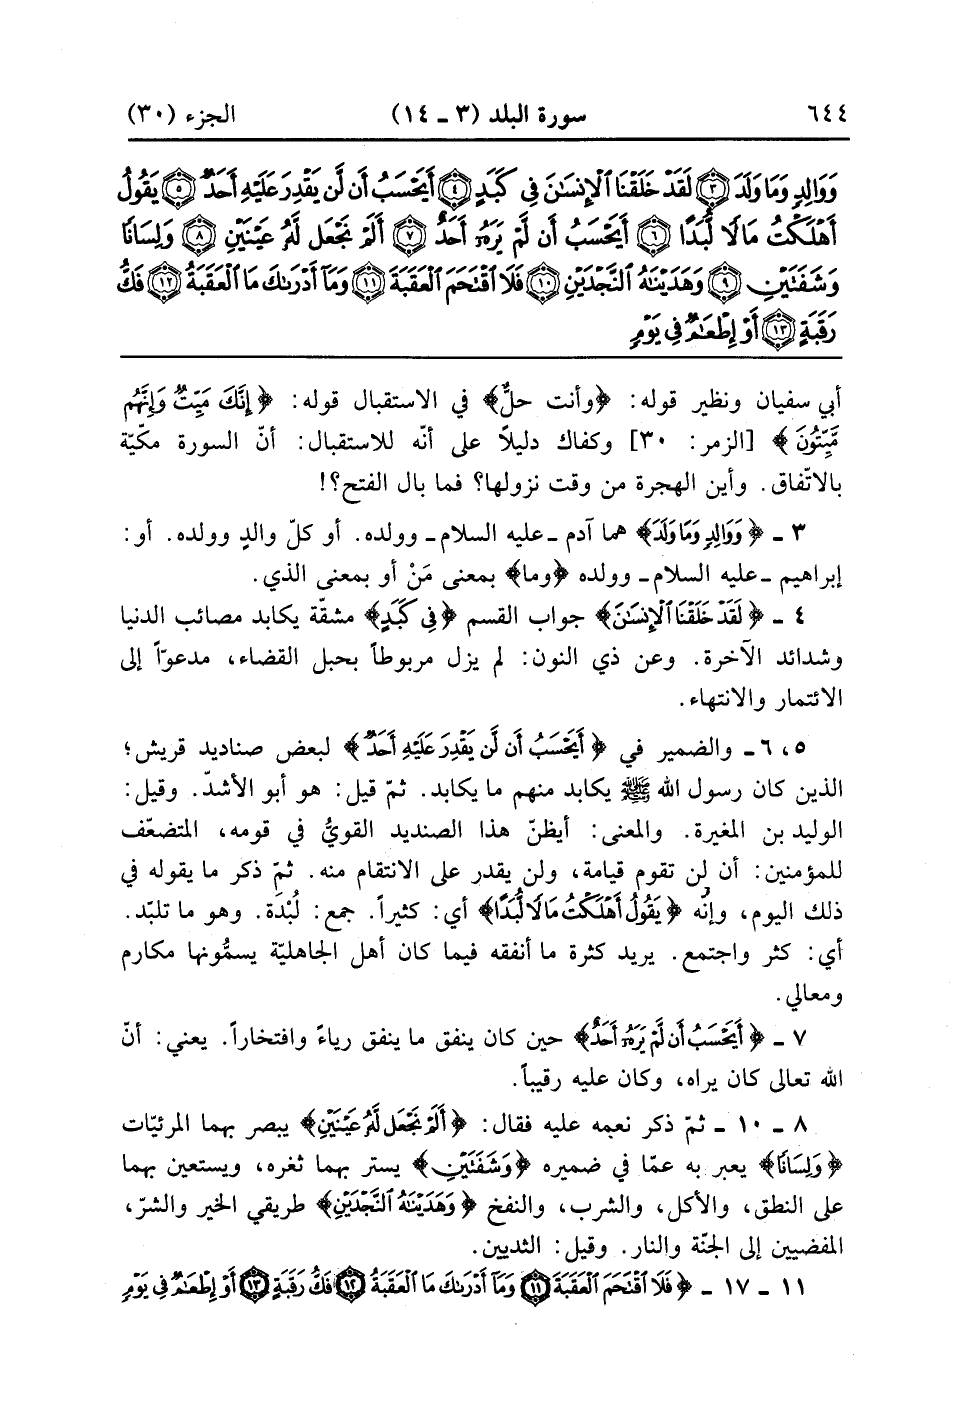 ٦٤٤ سورة البلد (٣ - ١٤) الجزء (٣٠)
وَوَالِدٍ وَمَا وَلَدَ ﴿٣﴾ لَقَدْ خَلَقْنَا ٱلْإِنسَٰنَ فِي كَبَدٍ ﴿٤﴾ أَيَحْسَبُ أَن لَّن يَقْدِرَ عَلَيْهِ أَحَدٌ ﴿٥﴾ يَقُولُ
أَهْلَكْتُ مَالًا لُّبَدًا ﴿٦﴾ أَيَحْسَبُ أَن لَّمْ يَرَهُۥ أَحَدٌ ﴿٧﴾ أَلَمْ نَجْعَل لَّهُۥ عَيْنَيْنِ ﴿٨﴾ وَلِسَانًا
وَشَفَتَيْنِ ﴿٩﴾ وَهَدَيْنَٰهُ ٱلنَّجْدَيْنِ ﴿١٠﴾ فَلَا ٱقْتَحَمَ ٱلْعَقَبَةَ ﴿١١﴾ وَمَآ أَدْرَىٰكَ مَا ٱلْعَقَبَةُ ﴿١٢﴾ فَكُّ
رَقَبَةٍ ﴿١٣﴾ أَوْ إِطْعَٰمٌ فِي يَوْمٍ
أبي سفيان ونظير قوله: ﴿وأنت حلٌّ﴾ في الاستقبال قوله: ﴿إِنَّكَ مَيِّتٌ وَإِنَّهُم
مَّيِّتُونَ﴾ [الزمر: ٣٠] وكفاك دليلاً على أنّه للاستقبال: أنّ السورة مكيّة
بالاتّفاق. وأين الهجرة من وقت نزولها؟ فما بال الفتح؟!
٣ - ﴿وَوَالِدٍ وَمَا وَلَدَ﴾ هما آدم -عليه السلام- وولده. أو كلّ والدٍ وولده. أو:
إبراهيم -عليه السلام- وولده ﴿وما﴾ بمعنى مَنْ أو بمعنى الذي.
٤ - ﴿لَقَدْ خَلَقْنَا ٱلْإِنسَٰنَ﴾ جواب القسم ﴿فِي كَبَدٍ﴾ مشقّة يكابد مصائب الدنيا
وشدائد الآخرة. وعن ذي النون: لم يزل مربوطاً بحبل القضاء، مدعوّاً إلى
الائتمار والانتهاء.
٥، ٦- والضمير في ﴿أَيَحْسَبُ أَن لَّن يَقْدِرَ عَلَيْهِ أَحَدٌ﴾ لبعض صناديد قريش؛
الذين كان رسول الله ﷺ يكابد منهم ما يكابد. ثمّ قيل: هو أبو الأشدّ. وقيل:
الوليد بن المغيرة. والمعنى: أيظنّ هذا الصنديد القويُّ في قومه، المتضعّف
للمؤمنين: أن لن تقوم قيامة، ولن يقدر على الانتقام منه. ثمّ ذكر ما يقوله في
ذلك اليوم، وإنّه ﴿يَقُولُ أَهْلَكْتُ مَالًا لُّبَدًا﴾ أي: كثيراً. جمع: لُبْدَة. وهو ما تلبّد.
أي: كثر واجتمع. يريد كثرة ما أنفقه فيما كان أهل الجاهليّة يسمُّونها مكارم
ومعالي.
٧ - ﴿أَيَحْسَبُ أَن لَّمْ يَرَهُۥ أَحَدٌ﴾ حين كان ينفق ما ينفق رياءً وافتخاراً. يعني: أنّ
الله تعالى كان يراه، وكان عليه رقيباً.
٨ - ١٠ - ثمّ ذكر نعمه عليه فقال: ﴿أَلَمْ نَجْعَل لَّهُۥ عَيْنَيْنِ﴾ يبصر بهما المرئيّات
﴿وَلِسَانًا﴾ يعبر به عمّا في ضميره ﴿وَشَفَتَيْنِ﴾ يستر بهما ثغره، ويستعين بهما
على النطق، والأكل، والشرب، والنفخ ﴿وَهَدَيْنَٰهُ ٱلنَّجْدَيْنِ﴾ طريقي الخير والشرّ،
المفضيين إلى الجنّة والنار. وقيل: الثديين.
١١ - ١٧ - ﴿فَلَا ٱقْتَحَمَ ٱلْعَقَبَةَ ﴿١١﴾ وَمَآ أَدْرَىٰكَ مَا ٱلْعَقَبَةُ ﴿١٢﴾ فَكُّ رَقَبَةٍ ﴿١٣﴾ أَوْ إِطْعَٰمٌ فِي يَوْمٍ